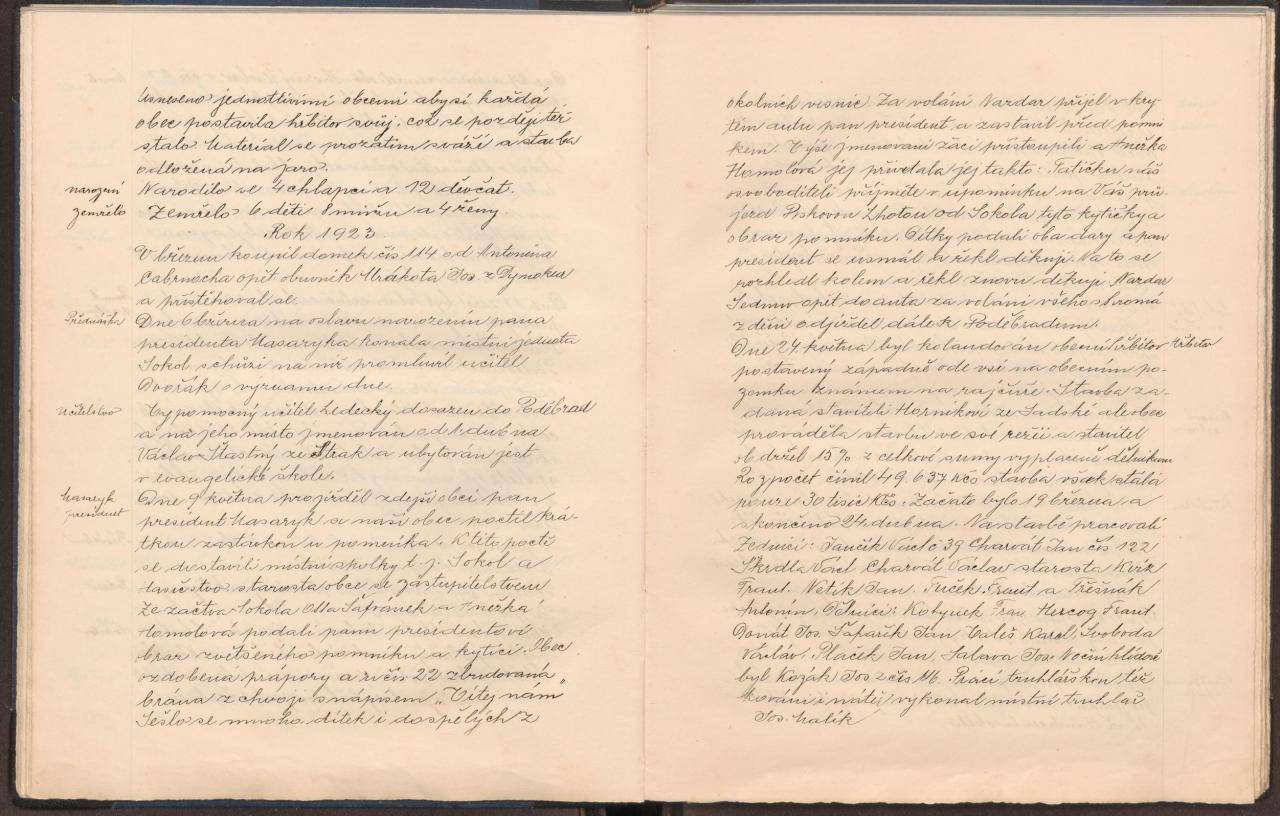 usneseno jednotlivimi obcemi aby si každá
obec postavila hřbitov svůj. což se později též
stalo. Material se prozatim sváží a stavba
odložena na jaro.
narození Narodilo se 4 chlapci a 12 děvčat.
zemřelo Zemřelo 6 dětí 8 mužů a 4 ženy
Rok 1923
V březnu koupil domek čís 114 od Antonína
Cabrnocha opět obuvník Mrákota Jos. z Dymokur
a přistěhoval se.
Přednáška Dne 6 března na oslavu narozenin pana
presidenta Masaryka konala místní jednota
Sokol schůzi na níž promluvil učitel
Dvořák o významu dne.
Učitelstvo Výpomocný učitel Ledecký dosazen do Poděbrad
a na jeho místo jmenován od 1. dubna
Václav Šťastný ze Strak a ubytován jest
v evangelické škole.
Masaryk president Dne 9 května projížděl zdejší obcí pan
president Masaryk a naši obec poctil krá-
tkou zastávkou u pomníka. K této poctě
se dostavili místní spolky t. j. Sokol a
Hasičstvo starosta obce se zastupitelstvem
Ze žactva Sokola Otta Šafránek a Anežka
Homolová podali panu presidentovi
obraz zvětšeného pomníku a kytici. Obec
ozdobena prápory a u čís 22 zbudovaná
brána z chvojí s nápisem „Vítej nám"
Sešlo se mnoho dítek i dospělých z
okolních vesnic. Za volání Nazdar přijel v kry-
tém autu pan president a zastavil před pomní
kem. Výše jmenovaní žáci přistoupili a Anežka
Homolová jej přivetala jej takto: Tatíčku náš
osvoboditeli přijměte v upomínku na Váš prů-
jezd Pískovou Lhotou od Sokola tyto kytičky a
obraz pomníku. Dítky podali oba dary a pan
president se usmál a řekl děkuji. Na to se
pozhledl kolem a řekl znovu děkuji Nazdar
Sednuv opět do auta za volání všeho shroma
ždění odjížděl dále k Poděbradum.
Dne 24. května byl kolaudován obecní hřbitov hřbitov
postavený západně ode vsi na obecním po-
zemku známem na rajčuře. Stavba za-
daná staviteli Horníkovi ze Sadské ale obec
prováděla stavbu ve své režii a stavitel
obdržel 15% z celkové sumy vyplacené dělníkum
Rozpočet činil 49.637 Kčs stavba však stála
pouze 30 tisíc Kčs. Začato bylo 19 března a
skončeno 24. dubna. Na stavbě pracovali
Zedníci: Janžík Václ 39 Charvát Jan čís 122
Škrdla Václ Charvát Václav starosta Kvíz
Frant. Netík Jan. Tuček Frant a Třešnák
Antonín. Dělníci: Kobynek Fran Hercog Frant.
Donát Jos. Šafařík Jan Valeš Karel, Svoboda
Václav, Plaček Jan, Salava Jos. Nočním hlídač
byl Kozák Jos z čís 16. Práci truhlářskou též
kování i nátěr vykonal místní truhlář
Jos. Malík